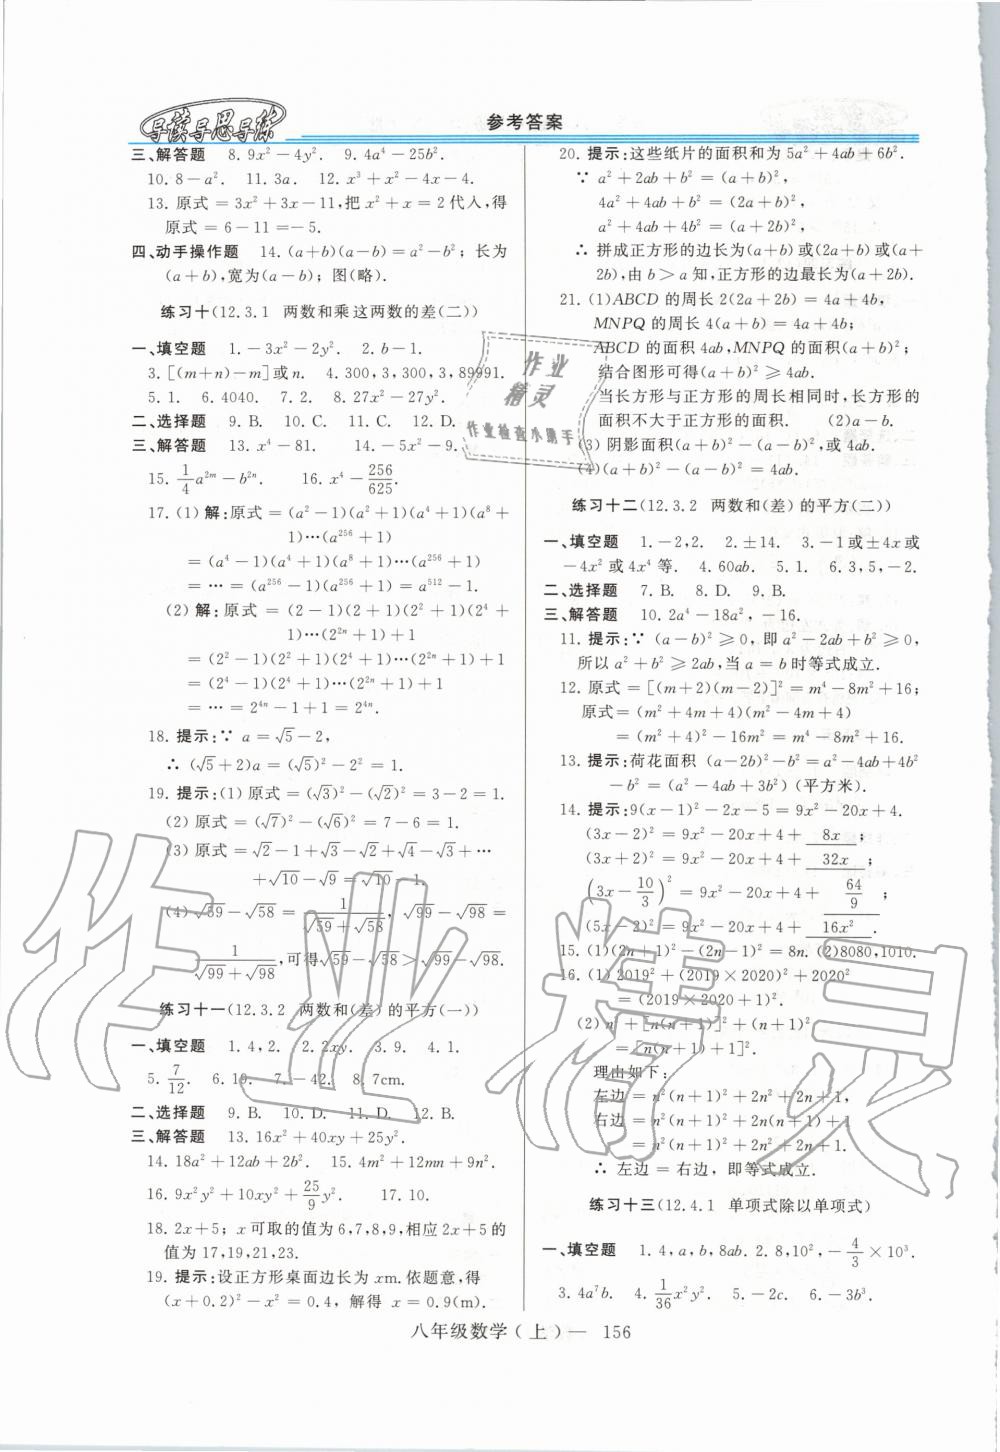 导读导思导练
参考答案
三、解答题 8. 9x²－4y². 9. 4a⁴－25b².
10. 8－a². 11. 3a. 12. x³＋x²－4x－4.
13. 原式＝3x²＋3x－11,把 x²＋x＝2代入,得
原式＝6－11＝－5.
四、动手操作题 14. (a＋b)(a－b)＝a²－b²；长为
(a＋b),宽为(a－b)；图(略).
练习十(12.3.1 两数和乘这两数的差(二))
一、填空题 1. －3x²－2y². 2. b－1.
3. [(m＋n)－m]或n. 4. 300,3,300,3,89991.
5. 1. 6. 4040. 7. 2. 8. 27x²－27y².
二、选择题 9. B. 10. C. 11. C. 12. D.
三、解答题 13. x⁴－81. 14. －5x²－9.
15. 1/4 a²ᵐ－b²ⁿ. 16. x⁴－256/625.
17. (1) 解:原式＝(a²－1)(a²＋1)(a⁴＋1)(a⁸＋
1)…(a²⁵⁶＋1)
＝(a⁴－1)(a⁴＋1)(a⁸＋1)…(a²⁵⁶＋1)
＝…＝(a²⁵⁶－1)(a²⁵⁶＋1)＝a⁵¹²－1.
(2) 解:原式＝(2－1)(2＋1)(2²＋1)(2⁴＋
1)…(2²ⁿ＋1)＋1
＝(2²－1)(2²＋1)(2⁴＋1)…(2²ⁿ＋1)＋1
＝(2⁴－1)(2⁴＋1)…(2²ⁿ＋1)＋1
＝…＝2⁴ⁿ－1＋1＝2⁴ⁿ.
18. 提示:∵ a＝√5－2,
∴ (√5＋2)a＝(√5)²－2²＝1.
19. 提示:(1) 原式＝(√3)²－(√2)²＝3－2＝1.
(2) 原式＝(√7)²－(√6)²＝7－6＝1.
(3) 原式＝√2－1＋√3－√2＋√4－√3＋…
＋√10－√9＝√10－1.
(4) √59－√58＝1/(√59＋√58), √99－√98＝
1/(√99＋√98),可得√59－√58＞√99－√98.
练习十一(12.3.2 两数和(差)的平方(一))
一、填空题 1. 4,2. 2. 2xy. 3. 9. 4. 1.
5. 7/12. 6. 19. 7. －42. 8. 7cm.
二、选择题 9. B. 10. D. 11. D. 12. B.
三、解答题 13. 16x²＋40xy＋25y².
14. 18a²＋12ab＋2b². 15. 4m²＋12mn＋9n².
16. 9x²y²＋10xy²＋25/9 y². 17. 10.
18. 2x＋5；x可取的值为6,7,8,9,相应2x＋5的
值为17,19,21,23.
19. 提示:设正方形桌面边长为xm.依题意,得
(x＋0.2)²－x²＝0.4,解得 x＝0.9(m).
20. 提示:这些纸片的面积和为5a²＋4ab＋6b².
∵ a²＋2ab＋b²＝(a＋b)²,
4a²＋4ab＋b²＝(2a＋b)²,
a²＋4ab＋4b²＝(a＋2b)²,
∴ 拼成正方形的边长为(a＋b)或(2a＋b)或(a＋
2b),由b＞a知,正方形的边最长为(a＋2b).
21. (1)ABCD的周长2(2a＋2b)＝4a＋4b,
MNPQ的周长4(a＋b)＝4a＋4b；
ABCD的面积4ab,MNPQ的面积(a＋b)²；
结合图形可得(a＋b)²≥4ab.
当长方形与正方形的周长相同时,长方形的
面积不大于正方形的面积. (2)a－b.
(3) 阴影面积(a＋b)²－(a－b)²,或4ab.
(4)(a＋b)²－(a－b)²＝4ab.
练习十二(12.3.2 两数和(差)的平方(二))
一、填空题 1. －2,2. 2. ±14. 3. －1或±4x或
－4x²或4x⁴等. 4. 60ab. 5. 1. 6. 3,5,－2.
二、选择题 7. B. 8. D. 9. B.
三、解答题 10. 2a⁴－18a²,－16.
11. 提示:∵ (a－b)²≥0,即a²－2ab＋b²≥0,
所以a²＋b²≥2ab,当a＝b时等式成立.
12. 原式＝[(m＋2)(m－2)]²＝m⁴－8m²＋16；
原式＝(m²＋4m＋4)(m²－4m＋4)
＝(m²＋4)²－16m²＝m⁴－8m²＋16.
13. 提示:荷花面积 (a－2b)²－b²＝a²－4ab＋4b²
－b²＝(a²－4ab＋3b²)(平方米).
14. 提示:9(x－1)²－2x－5＝9x²－20x＋4.
(3x－2)²＝9x²－20x＋4＋ 8x ；
(3x＋2)²＝9x²－20x＋4＋ 32x ；
(3x－10/3)²＝9x²－20x＋4＋ 64/9 ；
(5x－2)²＝9x²－20x＋4＋ 16x² .
15. (1)(2n＋1)²－(2n－1)²＝8n. (2)8080,1010.
16. (1) 2019²＋(2019×2020)²＋2020²
＝(2019×2020＋1)².
(2) n²＋[n(n＋1)]²＋(n＋1)²
＝[n(n＋1)＋1]².
理由如下:
左边＝n²(n＋1)²＋2n²＋2n＋1,
右边＝n²(n＋1)²＋2n(n＋1)＋1
＝n²(n＋1)²＋2n²＋2n＋1.
∴ 左边＝右边,即等式成立.
练习十三(12.4.1 单项式除以单项式)
一、填空题 1. 4,a,b,8ab. 2. 8,10²,－4/3×10³.
3. 4a⁷b. 4. 1/36 x²y². 5. －2c. 6. －3b³.
八年级数学(上)— 156
作业
精灵
作业检查小助手
作业精灵